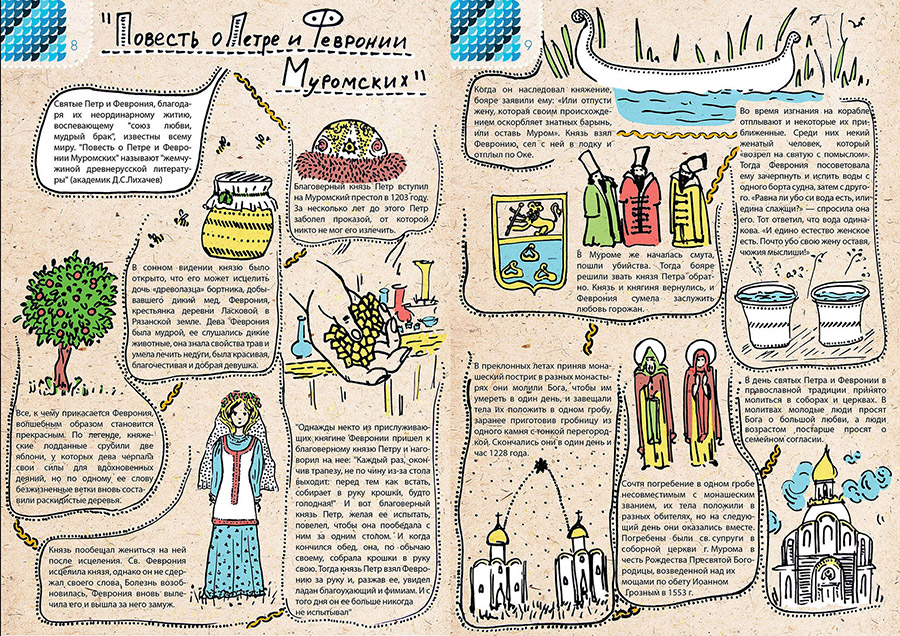 8
"Повесть о Петре и Февронии
Муромских"
Святые Петр и Феврония, благода-
ря их неординарному житию,
воспевающему "союз любви,
мудрый брак", известны всему
миру. "Повесть о Петре и Февро-
нии Муромских" называют "жемчу-
жиной древнерусской литерату-
ры" (академик Д.С.Лихачев)
Благоверный князь Петр вступил
на Муромский престол в 1203 году.
За несколько лет до этого Петр
заболел проказой, от которой
никто не мог его излечить.
В сонном видении князю было
открыто, что его может исцелить
дочь «древолазца» бортника, добы-
вавшего дикий мед, Феврония,
крестьянка деревни Ласковой в
Рязанской земле. Дева Феврония
была мудрой, ее слушались дикие
животные, она знала свойства трав и
умела лечить недуги, была красивая,
благочестивая и добрая девушка.
Все, к чему прикасается Феврония,
волшебным образом становится
прекрасным. По легенде, княже-
ские подданные срубили две
яблони, у которых дева черпала
свои силы для вдохновенных
деяний, но по одному ее слову
безжизненные ветки вновь соста-
вили раскидистые деревья.
Князь пообещал жениться на ней
после исцеления. Св. Феврония
исцелила князя, однако он не сдер-
жал своего слова. Болезнь возоб-
новилась, Феврония вновь выле-
чила его и вышла за него замуж.
"Однажды некто из прислуживаю-
щих княгине Февронии пришел к
благоверному князю Петру и наго-
ворил на нее: "Каждый раз, окон-
чив трапезу, не по чину из-за стола
выходит: перед тем как встать,
собирает в руку крошки, будто
голодная!" И вот благоверный
князь Петр, желая ее испытать,
повелел, чтобы она пообедала с
ним за одним столом. И когда
кончился обед, она, по обычаю
своему, собрала крошки в руку
свою. Тогда князь Петр взял Февро-
нию за руку и, разжав ее, увидел
ладан благоухающий и фимиам. И с
того дня он ее больше никогда
не испытывал"
9
Когда он наследовал княжение,
бояре заявили ему: «Или отпусти
жену, которая своим происхожде-
нием оскорбляет знатных барынь,
или оставь Муром». Князь взял
Февронию, сел с ней в лодку и
отплыл по Оке.
Во время изгнания на корабле
отплывают и некоторые их при-
ближенные. Среди них некий
женатый человек, который
«возрел на святую с помыслом».
Тогда Феврония посоветовала
ему зачерпнуть и испить воды с
одного борта судна, затем с друго-
го. «Равна ли убо си вода есть, или
едина слажщи?» — спросила она
его. Тот ответил, что вода одина-
кова. «И едино естество женское
есть. Почто убо свою жену оставя,
чюжия мыслиши!»
В Муроме же началась смута,
пошли убийства. Тогда бояре
решили звать князя Петра обрат-
но. Князь и княгиня вернулись, и
Феврония сумела заслужить
любовь горожан.
В преклонных летах приняв мона-
шеский постриг в разных монасты-
рях они молили Бога, чтобы им
умереть в один день, и завещали
тела их положить в одному гробу,
заранее приготовив гробницу из
одного камня с тонкой перегород-
кой. Скончались они в один день и
час 1228 года.
В день святых Петра и Февронии в
православной традиции принято
молиться в соборах и церквах. В
молитвах молодые люди просят
Бога о большой любви, а люди
возрастом постарше просят
семейном согласии.
Сочтя погребение в одном гробе
несовместимым с монашеским
званием, их тела положили в
разных обителях, но на следую-
щий день они оказались вместе.
Погребены были св.супруги в
соборной церкви г.Мурома в
честь Рождества Пресвятой Бого-
родицы, возведенной над их
мощами по обету Иоанном
Грозным в 1553 г.